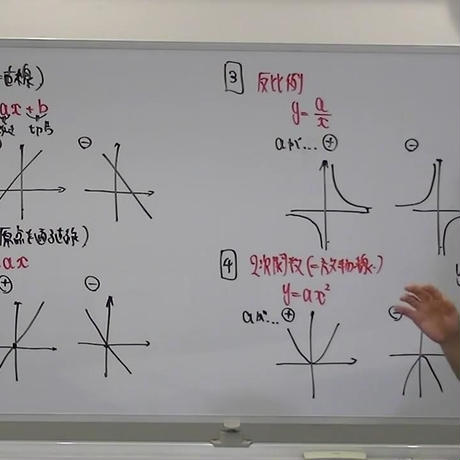 直線)
ax+b
切片
⊖
原点を通る直線)
ax
⊕ ⊖
3 反比例
y=a/x
aが… ⊕ ⊖
4 2次関数(=放物線)
y=ax²
aが… ⊕